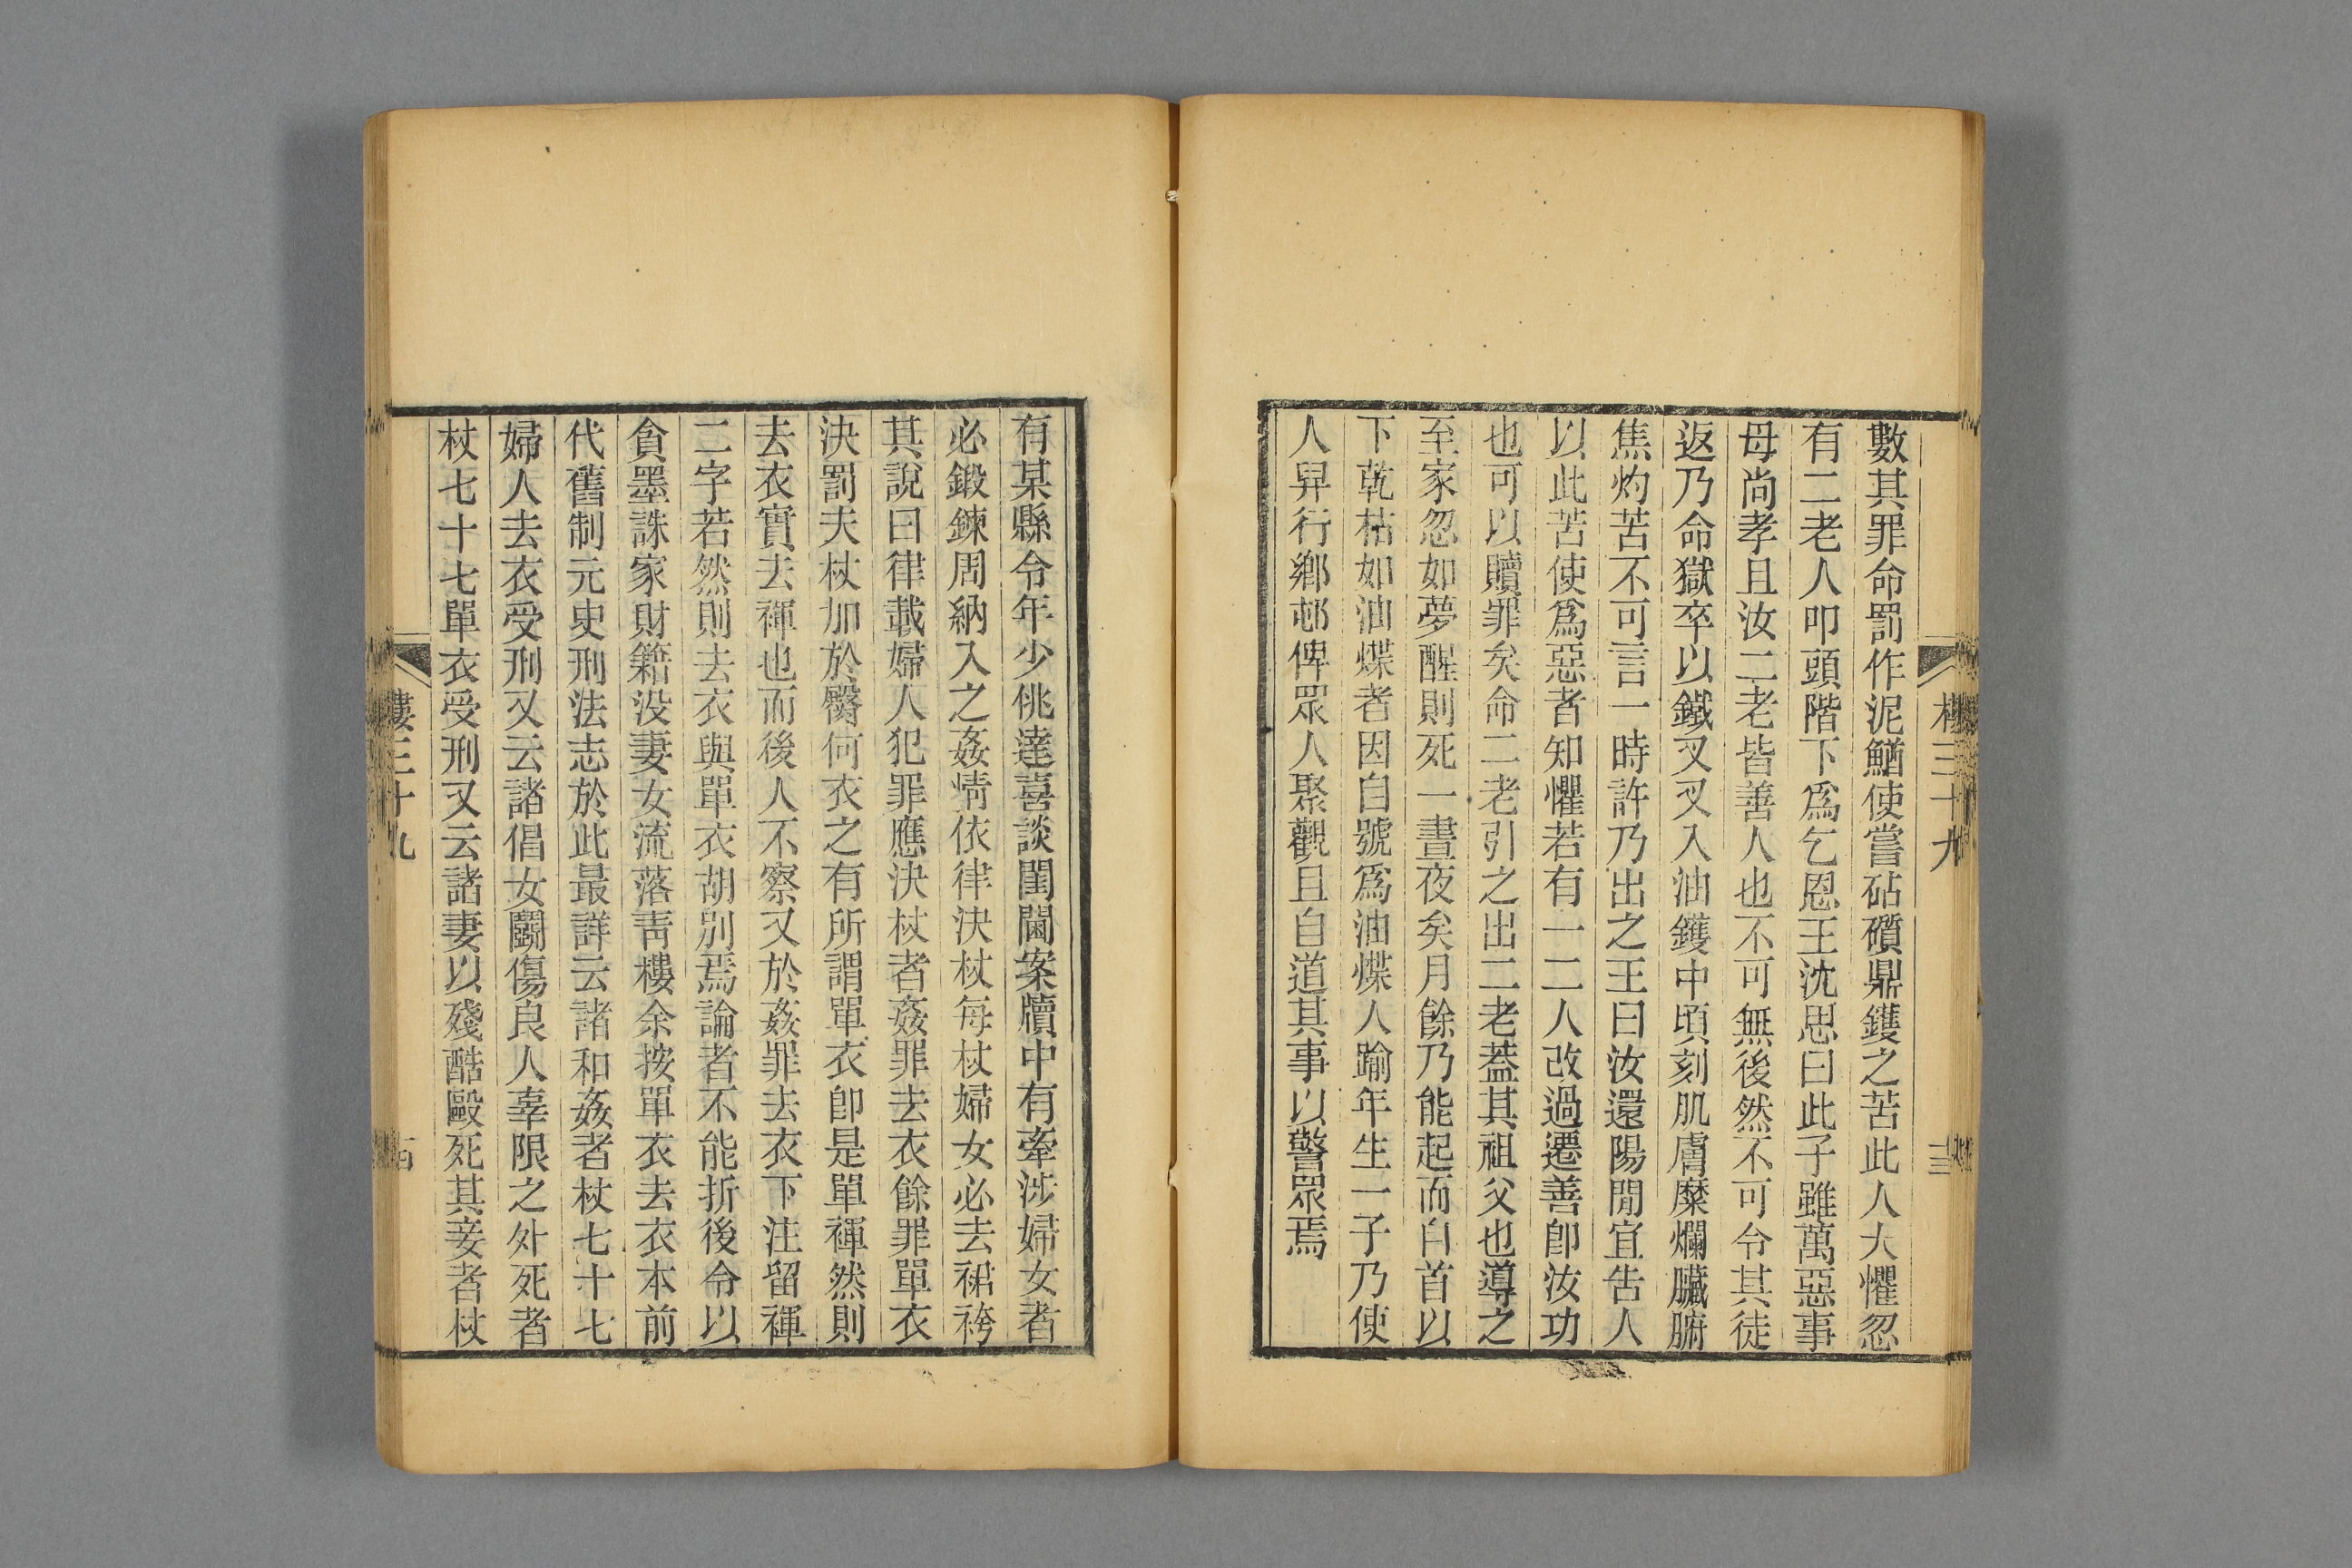 數其罪命罰作泥鰌使嘗砧鑕鼎鑊之苦此人大懼忽
有二老人叩頭階下爲乞恩王沈思曰此子雖萬惡事
母尚孝且汝二老皆善人也不可無後然不可令其徒
返乃命獄卒以鐵叉叉入油鑊中頃刻肌膚糜爛臟腑
焦灼苦不可言一時許乃出之王曰汝還陽閒宜告人
以此苦使爲惡者知懼若有一二人改過遷善卽汝功
也可以贖罪矣命二老引之出二老蓋其祖父也導之
至家忽如夢醒則死一晝夜矣月餘乃能起而自首以
下乾枯如油煠者因自號爲油煠人踰年生一子乃使
人舁行鄉邨俾眾人聚觀且自道其事以警眾焉
樓三十九
十三
有某縣令年少佻達喜談閨閫案牘中有牽涉婦女者
必鍛鍊周納入之姦情依律決杖每杖婦女必去裙袴
其說曰律載婦人犯罪應決杖者姦罪去衣餘罪單衣
決罰夫杖加於臀何衣之有所謂單衣卽是單褌然則
去衣實去褌也而後人不察又於姦罪去衣下注留褌
二字若然則去衣與單衣胡別焉論者不能折後令以
貪墨誅家財籍没妻女流落靑樓余按單衣去衣本前
代舊制元史刑法志於此最詳云諸和姦者杖七十七
婦人去衣受刑又云諸倡女鬭傷良人辜限之外死者
杖七十七單衣受刑又云諸妻以殘酷毆死其妾者杖
樓三十九
十四